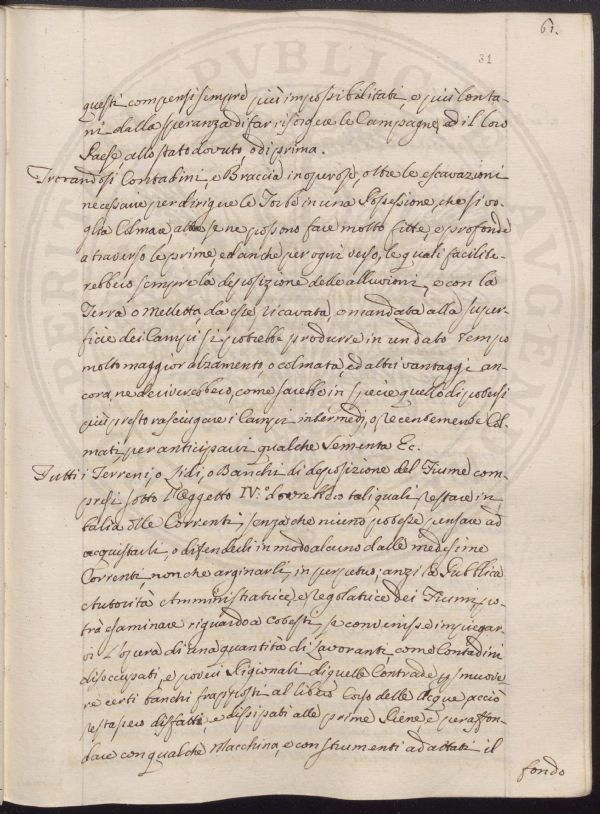 61.
31
questi compensi sempre più impossibilitati, e più lonta-
ni dalla speranza di far risorgere le Campagne, ed il loro
Paese, allo stato dovuto, o di prima.
Trovandosi Contadini, e Braccia inoperose, oltre le escavazioni
necessarie per dirigere le Torbe in una Possessione, che si vo-
glia Colmare, altre se ne possono fare molto fitte, e profonde
a traverso le prime ed anche per ogni verso, le quali facilite-
rebbero sempre la deposizione delle alluvioni, e con la
Terra o Melletta da esse ricavata, e mandata alla super-
ficie dei Campi si potrebbe produrre in un dato tempo
molto maggior alzamento, o colmata, ed altri vantaggi an-
cora ne deriverebbero, come sarebbe in specie quello di potersi
più presto rasciugare i Campi intermedj, o recentemente Col-
mati per anticiparvi qualche Sementa Ec.
Tutti i Terreni, o Lidi, o Banchi di deposizione del Fiume com-
presi sotto l'Oggetto IV.° dovrebbero tali quali restare in
balia delle Correnti, senza che niuno potesse pensare ad
acquistarli, o difenderli in modo alcuno dalle medesime
Correnti, non che arginarli in perpetuo; anzi la Pubblica
Autorità Amministratrice, e regolatrice dei Fiumi, po-
trà esaminare riguardo a Cotesti se convenisse impiegar-
vi l'opera di una quantità di Lavoranti come Contadini
disoccupati, e poveri Pigionali di quelle Contrade p smuove-
re certi banchi frapposti al libero Corso delle Acque acciò
restassero disfatti, e dissipati alle prime Piene e per affon-
dare con qualche Macchina, e con strumenti adattati il
fondo